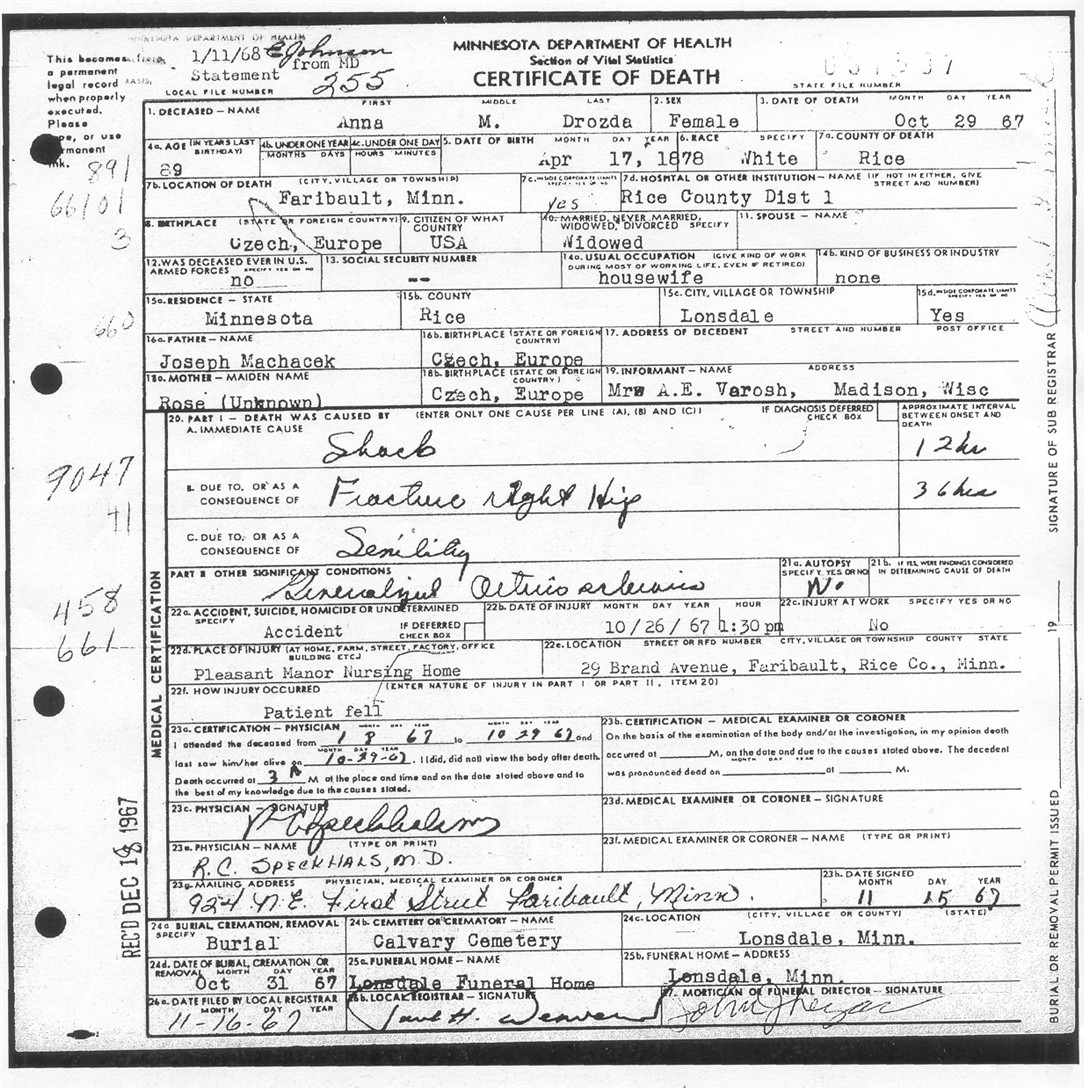 MINNESOTA DEPARTMENT OF HEALTH
1/11/68 E Johnson
from MD
Statement
LOCAL FILE NUMBER 255
This becomes
a permanent
legal record
when properly
executed.
Please
type, or use
permanent
ink.
MINNESOTA DEPARTMENT OF HEALTH
Section of Vital Statistics
CERTIFICATE OF DEATH
STATE FILE NUMBER
1. DECEASED — NAME FIRST MIDDLE LAST 2. SEX 3. DATE OF DEATH MONTH DAY YEAR
Anna M. Drozda Female Oct 29 67
4a. AGE (IN YEARS LAST BIRTHDAY) 4b. UNDER ONE YEAR MONTHS DAYS 4c. UNDER ONE DAY HOURS MINUTES 5. DATE OF BIRTH MONTH DAY YEAR 6. RACE SPECIFY 7a. COUNTY OF DEATH
89 Apr 17, 1878 White Rice
7b. LOCATION OF DEATH (CITY, VILLAGE OR TOWNSHIP) 7c. INSIDE CORPORATE LIMITS SPECIFY YES OR NO 7d. HOSPITAL OR OTHER INSTITUTION — NAME (IF NOT IN EITHER, GIVE STREET AND NUMBER)
Faribault, Minn. yes Rice County Dist 1
8. BIRTHPLACE (STATE OR FOREIGN COUNTRY) 9. CITIZEN OF WHAT COUNTRY 10. MARRIED, NEVER MARRIED, WIDOWED, DIVORCED SPECIFY 11. SPOUSE — NAME
Czech, Europe USA Widowed
12. WAS DECEASED EVER IN U.S. ARMED FORCES SPECIFY YES OR NO 13. SOCIAL SECURITY NUMBER 14a. USUAL OCCUPATION (GIVE KIND OF WORK DURING MOST OF WORKING LIFE, EVEN IF RETIRED) 14b. KIND OF BUSINESS OR INDUSTRY
no -- housewife none
15a. RESIDENCE — STATE 15b. COUNTY 15c. CITY, VILLAGE OR TOWNSHIP 15d. INSIDE CORPORATE LIMITS SPECIFY YES OR NO
Minnesota Rice Lonsdale Yes
16a. FATHER — NAME 16b. BIRTHPLACE (STATE OR FOREIGN COUNTRY) 17. ADDRESS OF DECEDENT STREET AND NUMBER POST OFFICE
Joseph Machacek Czech, Europe
18a. MOTHER — MAIDEN NAME 18b. BIRTHPLACE (STATE OR FOREIGN COUNTRY) 19. INFORMANT — NAME ADDRESS
Rose (Unknown) Czech, Europe Mrs A.E. Varosh, Madison, Wisc
20. PART I — DEATH WAS CAUSED BY (ENTER ONLY ONE CAUSE PER LINE (A), (B) AND (C)) IF DIAGNOSIS DEFERRED CHECK BOX APPROXIMATE INTERVAL BETWEEN ONSET AND DEATH
A. IMMEDIATE CAUSE
Shock 12 hr
B. DUE TO, OR AS A CONSEQUENCE OF Fracture right Hip 36 hrs
C. DUE TO, OR AS A CONSEQUENCE OF Senility
PART II OTHER SIGNIFICANT CONDITIONS 21a. AUTOPSY SPECIFY YES OR NO 21b. IF YES, WERE FINDINGS CONSIDERED IN DETERMINING CAUSE OF DEATH
Generalized Arteriosclerosis No
22a. ACCIDENT, SUICIDE, HOMICIDE OR UNDETERMINED SPECIFY IF DEFERRED CHECK BOX 22b. DATE OF INJURY MONTH DAY YEAR HOUR 22c. INJURY AT WORK SPECIFY YES OR NO
Accident 10/26/67 1:30 pm No
22d. PLACE OF INJURY (AT HOME, FARM, STREET, FACTORY, OFFICE BUILDING ETC.) 22e. LOCATION STREET OR RFD NUMBER CITY, VILLAGE OR TOWNSHIP COUNTY STATE
Pleasant Manor Nursing Home 29 Brand Avenue, Faribault, Rice Co., Minn.
22f. HOW INJURY OCCURRED (ENTER NATURE OF INJURY IN PART I OR PART II, ITEM 20)
Patient fell
23a. CERTIFICATION — PHYSICIAN MONTH DAY YEAR MONTH DAY YEAR
I attended the deceased from 1 8 67 to 10 29 67 and
last saw him/her alive on 10-29-67. I (did, did not) view the body after death.
Death occurred at 3 A M at the place and time and on the date stated above and to
the best of my knowledge due to the causes stated.
23b. CERTIFICATION — MEDICAL EXAMINER OR CORONER
On the basis of the examination of the body and/or the investigation, in my opinion death
occurred at M, on the date and due to the causes stated above. The decedent
MONTH DAY YEAR
was pronounced dead on at M.
23c. PHYSICIAN — SIGNATURE 23d. MEDICAL EXAMINER OR CORONER — SIGNATURE
23e. PHYSICIAN — NAME (TYPE OR PRINT) 23f. MEDICAL EXAMINER OR CORONER — NAME (TYPE OR PRINT)
R.C. SPECKHALS, M.D.
23g. MAILING ADDRESS PHYSICIAN, MEDICAL EXAMINER OR CORONER 23h. DATE SIGNED MONTH DAY YEAR
924 N.E. First Street Faribault, Minn. 11 15 67
24a BURIAL, CREMATION, REMOVAL SPECIFY 24b. CEMETERY OR CREMATORY — NAME 24c. LOCATION (CITY, VILLAGE OR COUNTY) (STATE)
Burial Calvary Cemetery Lonsdale, Minn.
24d. DATE OF BURIAL, CREMATION OR REMOVAL MONTH DAY YEAR 25a. FUNERAL HOME — NAME 25b. FUNERAL HOME — ADDRESS
Oct 31 67 Lonsdale Funeral Home Lonsdale, Minn.
26a. DATE FILED BY LOCAL REGISTRAR MONTH DAY YEAR 26b. LOCAL REGISTRAR — SIGNATURE 27. MORTICIAN OR FUNERAL DIRECTOR — SIGNATURE
11-16-67
891
66101
3
660
9047
41
458
661
MEDICAL CERTIFICATION
REC'D DEC 18 1967
SIGNATURE OF SUB REGISTRAR
19
BURIAL OR REMOVAL PERMIT ISSUED